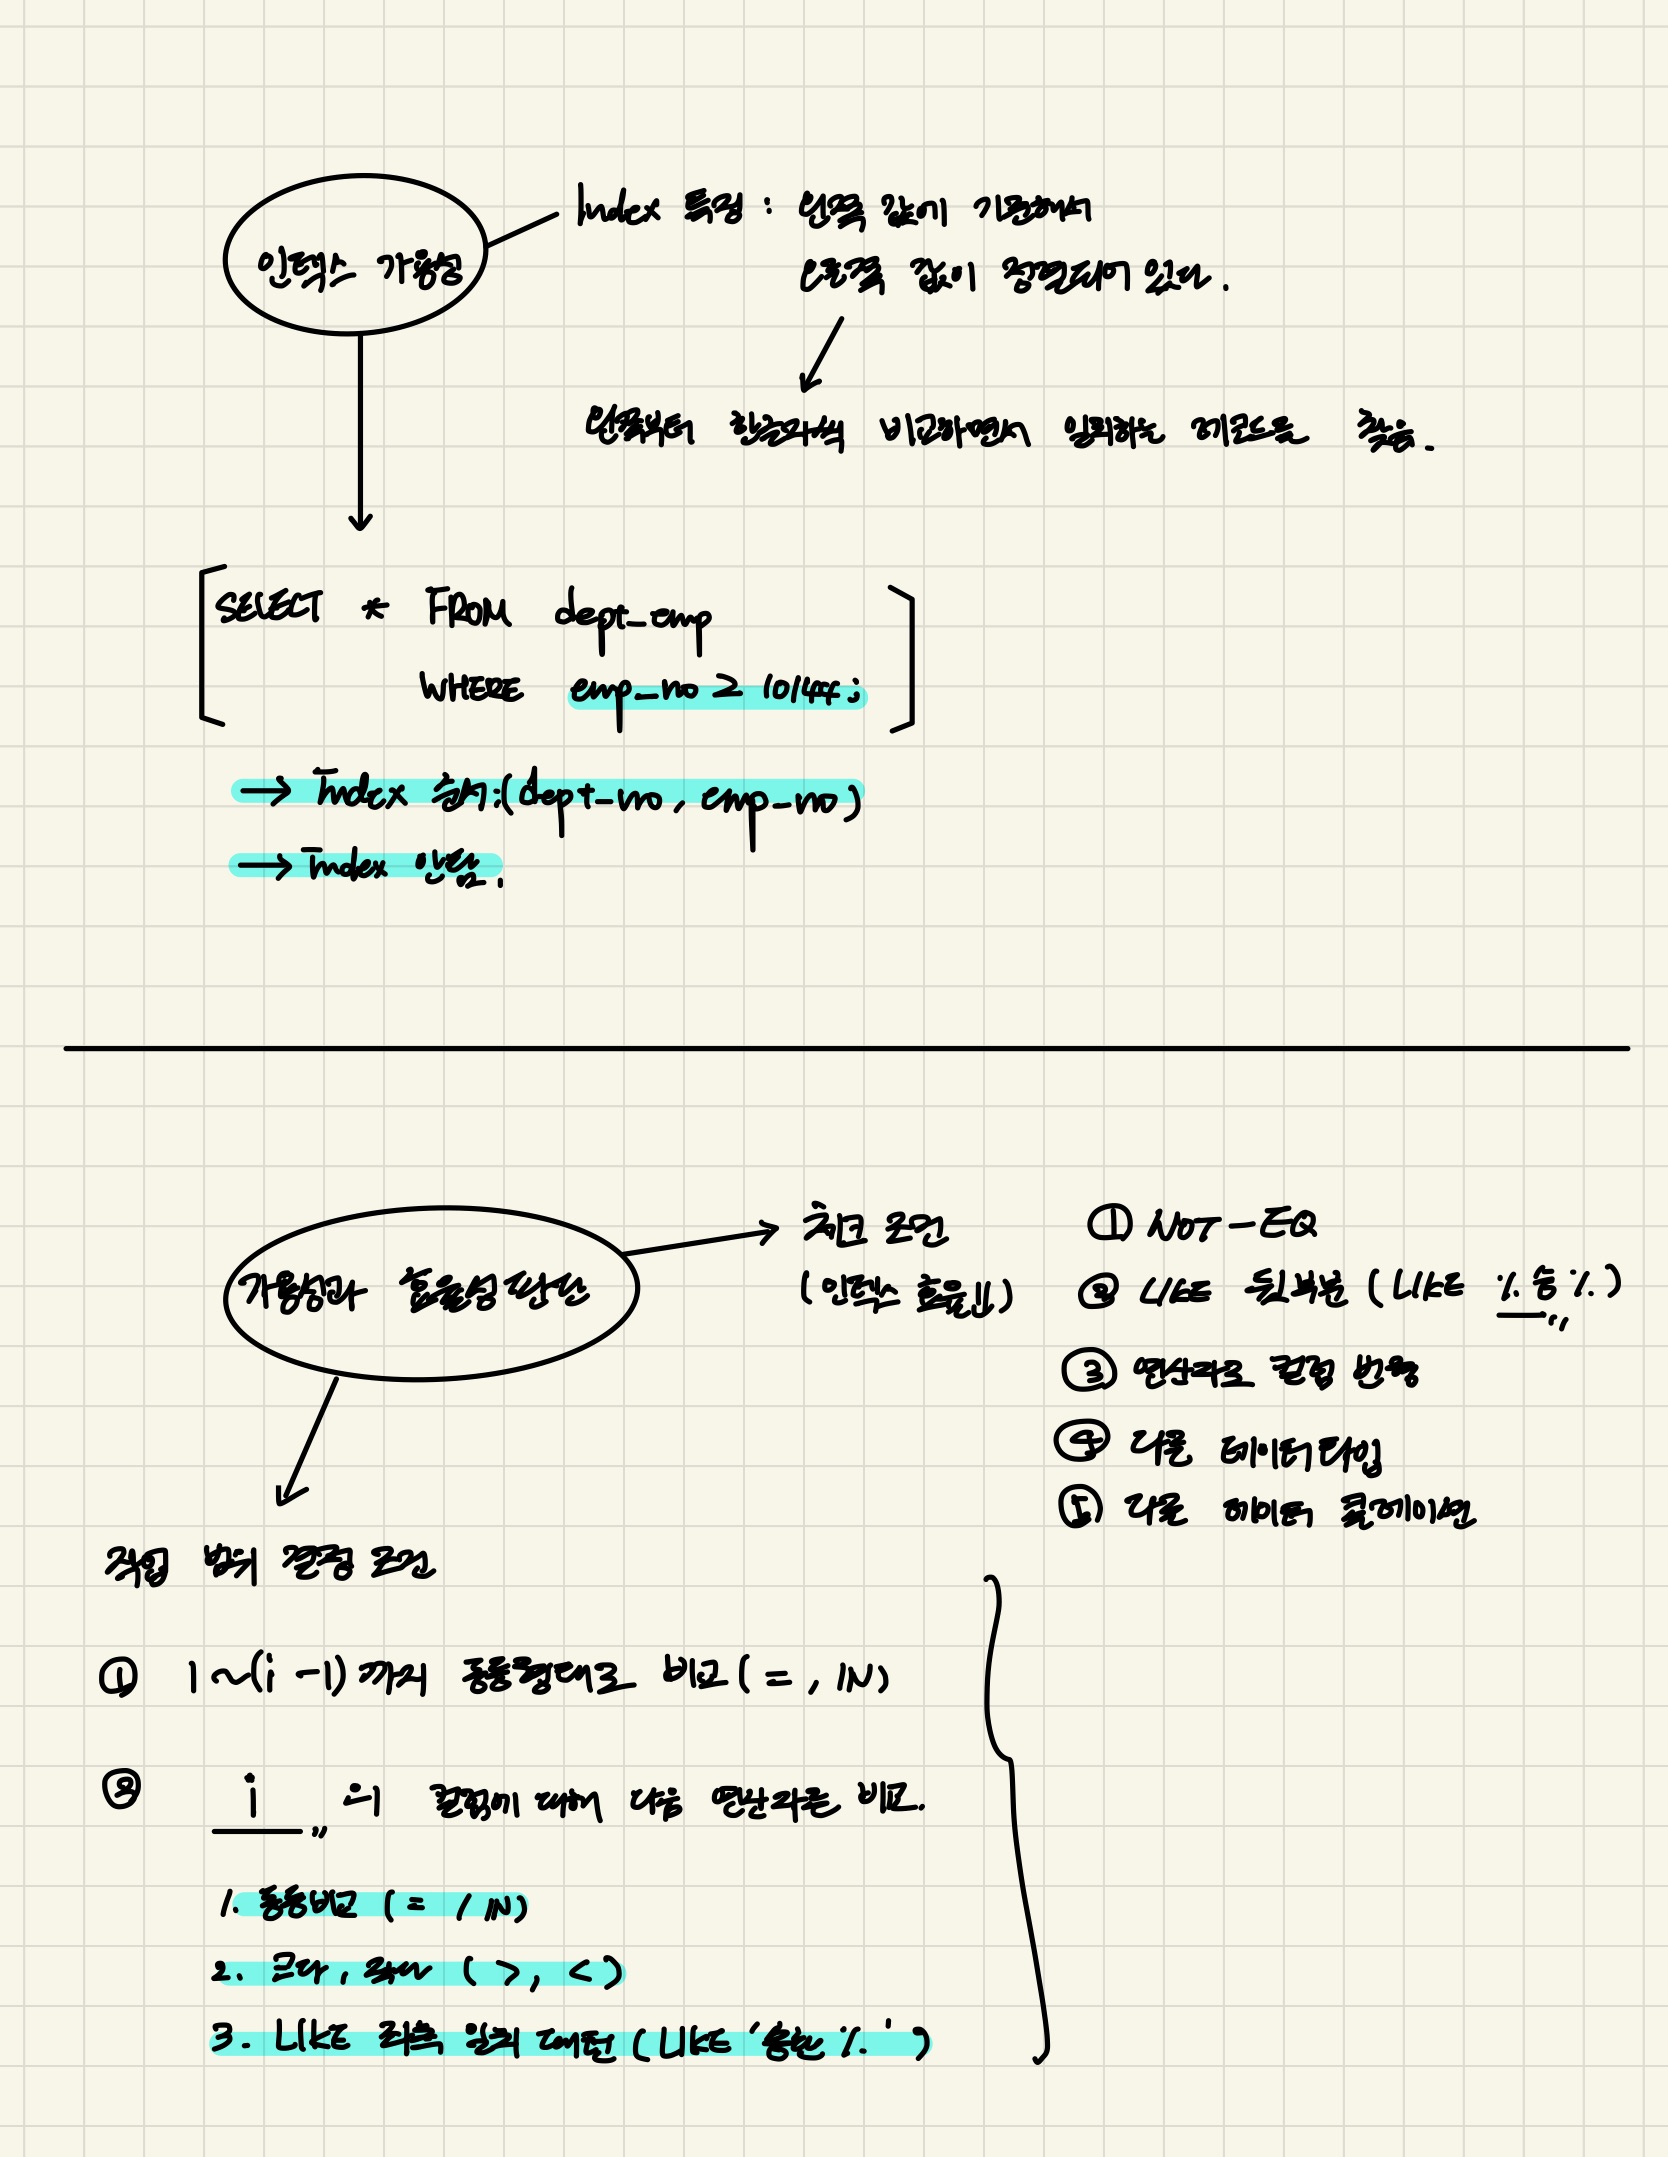 인덱스 가용성
Index 특징 : 왼쪽 값에 기준해서
오른쪽 값이 정렬되어 있다.
왼쪽부터 한글자씩 비교하면서 일치하는 레코드를 찾음.
SELECT * FROM dept_emp
WHERE emp_no ≥ 10144;
→ Index 순서:(dept_no, emp_no)
→ Index 안탐.
가용성과 효율성 판단
체크 조건
(인덱스 효율↓↓)
① NOT-EQ
② LIKE 뒷부분 (LIKE %승%)
③ 연산자로 컬럼 변형
④ 다른 데이터타입
⑤ 다른 데이터 콜레이션
작업 범위 결정 조건
① 1~(i-1)까지 동등형태로 비교(=, IN)
② i 의 컬럼에 대해 다음 연산자를 비교.
1. 동등비교 (= / IN)
2. 크다, 작다 ( >, < )
3. LIKE 좌측 일치 패턴 (LIKE '승환%')